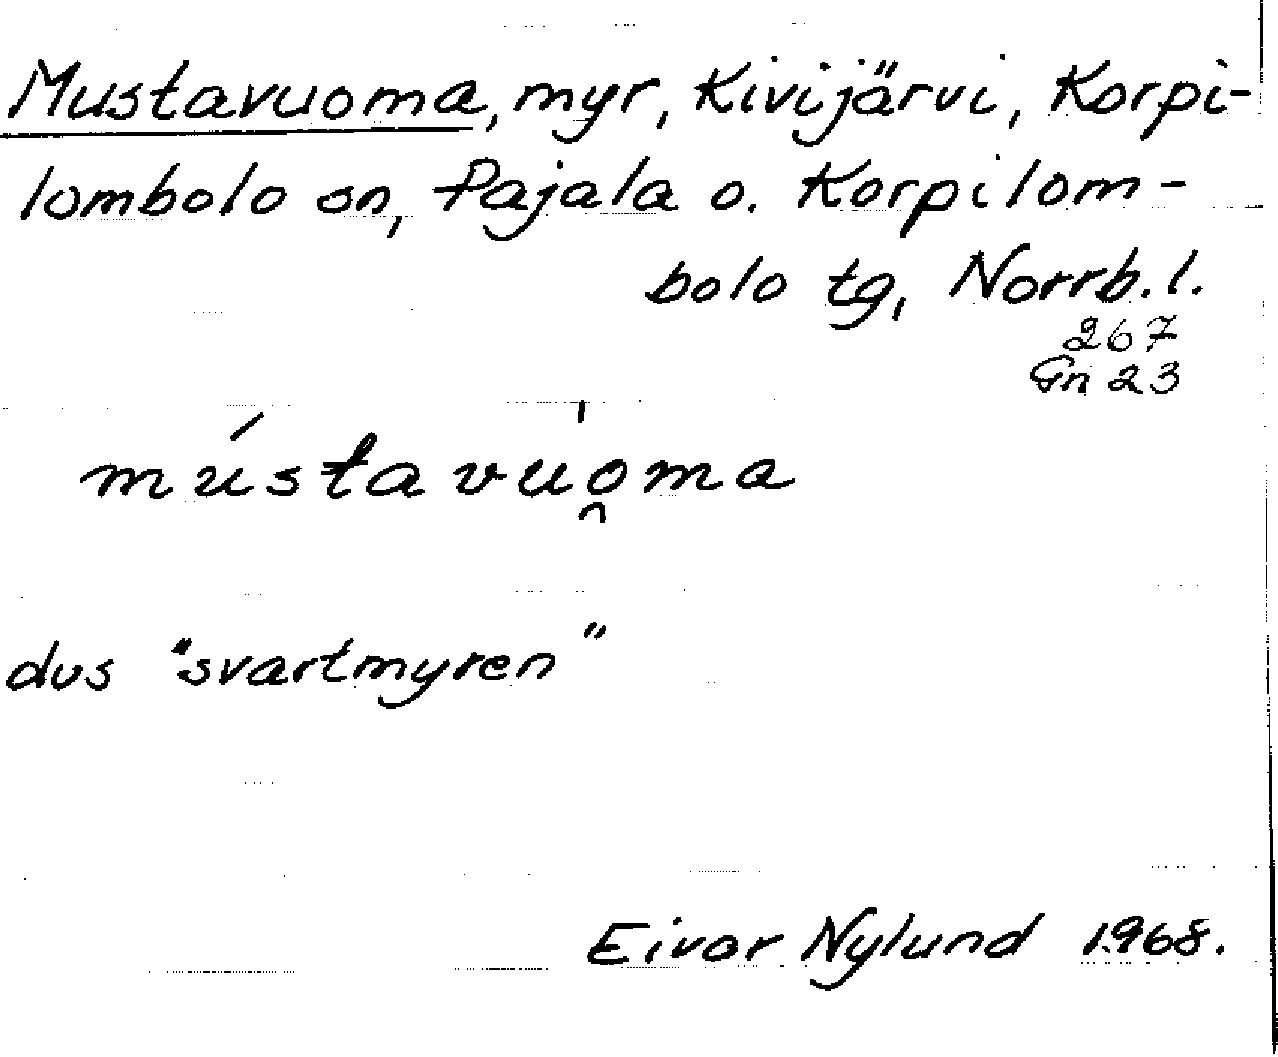 Mustavuoma, myr, Kivijärvi, Korpi-
lombolo sn, Pajala o. Korpilom-
bolo tg, Norrb.l.
267
Gn 23
mústavuo̯̍ma
dvs "svartmyren"
Eivor Nylund 1968.